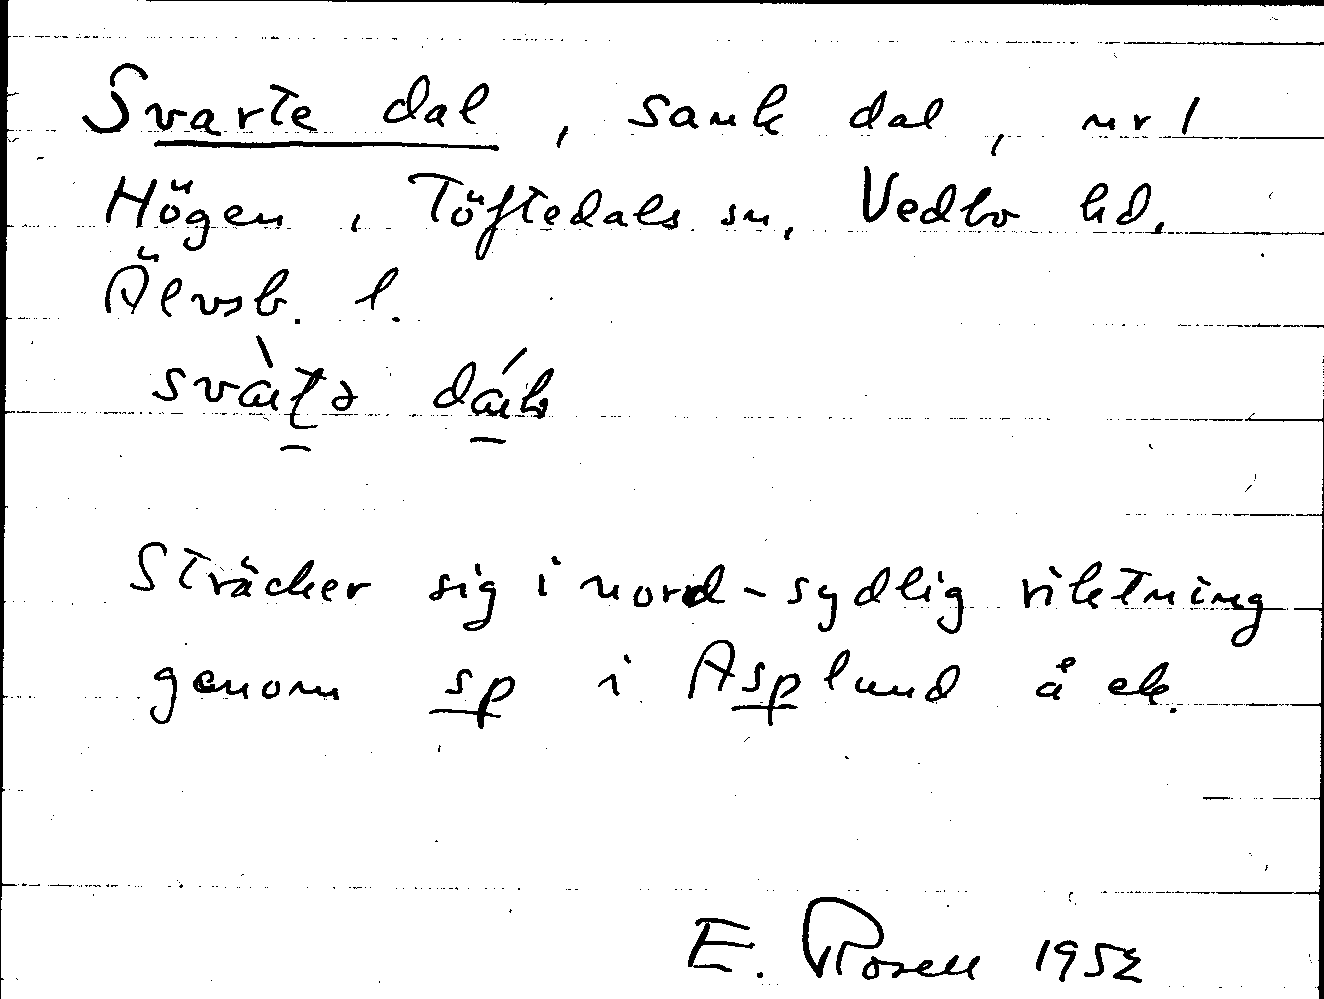 Svarte dal, sank dal, nr 1
Högen, Töftedals sn, Vedbo hd,
Älvsb. l.
Sträcker sig i nord-sydlig riktning
genom sp i Asplund å ek.
E. Rosell 1952